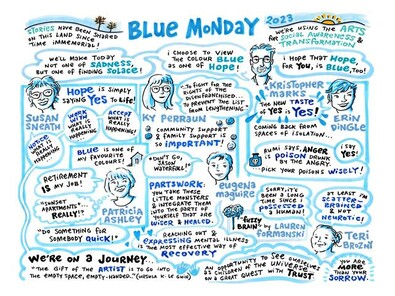 BLUE MONDAY
2023
STORIES HAVE BEEN SHARED
ON THIS LAND SINCE
TIME IMMEMORIAL!
WE'RE USING THE ARTS
FOR SOCIAL AWARENESS &
TRANSFORMATION
WE'LL MAKE TODAY
NOT ONE OF SADNESS,
BUT ONE OF FINDING SOLACE!
I CHOOSE TO VIEW
THE COLOUR BLUE
AS ONE OF HOPE!
I HOPE THAT HOPE,
FOR YOU, IS BLUE, TOO!
HOPE IS SIMPLY
SAYING YES TO LIFE!
SUSAN
SNEATH
NOTICE
WHAT'S
REALLY
HAPPENING!
WHAT IS
REALLY
HAPPENING?
ACCEPT
WHAT IS
REALLY
HAPPENING!
TO FIGHT FOR THE
RIGHTS OF THE
DISENFRANCHISED...
TO PREVENT THE LIST
FROM LENGTHENING!
KY PERRAUN
COMMUNITY
SUPPORT &
FAMILY SUPPORT IS
SO IMPORTANT!
KRISTOPHER
MARKS
THE NEW TASTE
OF YES IS YES!
ERIN
DINGLE
COMING BACK FROM
SPACES OF ISOLATION...
RUMI SAYS, ANGER
IS POISON DRUNK
BY THE ANGRY.
PICK YOUR POISONS WISELY!
I SAY
YES!
BLUE IS ONE OF
MY FAVOURITE
COLOURS!
RETIREMENT
IS MY JOB!
"SUNSET
APARTMENTS"...
REALLY!?
PATRICIA
ASHLEY
DO SOMETHING FOR
SOMEBODY QUICK!
"DON'T GO,
JASON
WATERFALL!"
PARTSWORK:
YOU TAKE THESE
LITTLE MONSTERS &
INTEGRATE THEM
INTO THE PARTS OF
YOURSELF THAT ARE
WISER & HEALED.
EUGENIA
MAGUIRE
SORRY, IT'S
BEEN A LONG
TIME SINCE I
POSSESSED
A HUMAN!
"FUZZY
BRAIN"
BY LAUREN
FORMANSKI
AT LEAST I'M
SCATTER-
BRAINED &
NOT
NEUROTIC!
TERI
BROZNI
YOU ARE
MORE THAN
YOUR
SORROW.
REACHING OUT &
EXPRESSING MENTAL ILLNESS
IS THE MOST EFFECTIVE WAY OF
RECOVERY
WE'RE ON A JOURNEY...
"THE GIFT OF THE ARTIST IS TO GO INTO
THE EMPTY SPACE, EMPTY-HANDED." (URSULA K. LE GUIN)
AN OPPORTUNITY TO SEE OURSELVES
AS CHILDREN OF THE UNIVERSE
ON A GREAT QUEST WITH TRUST